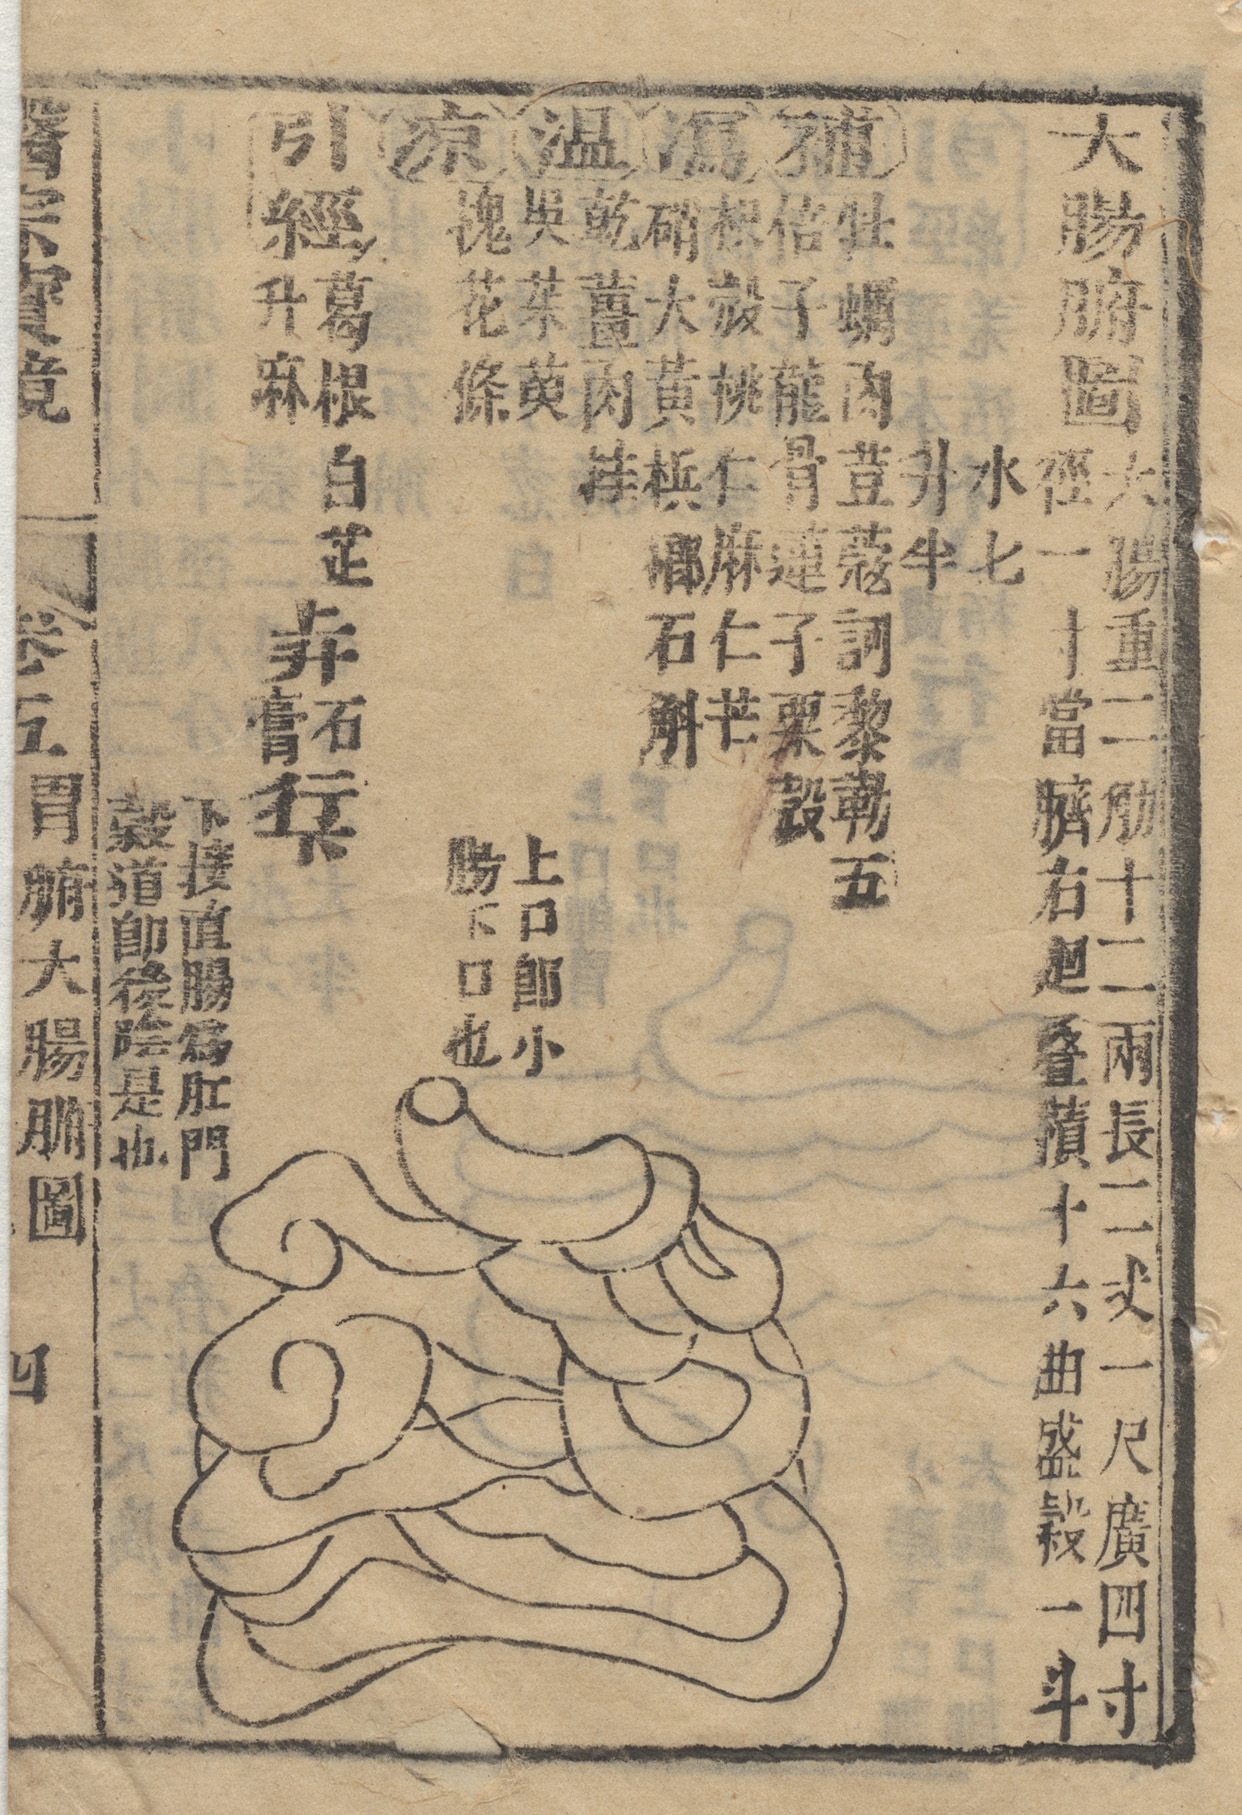 大腸腑圖
大腸重二觔十二兩長二丈一尺廣四寸
徑一寸當臍右廻疊積十六曲盛穀一斗
水七
升半
補
牡蠣肉荳蔲訶黎勒五
倍子龍骨蓮子粟殼
瀉
枳殼桃仁麻仁芒
硝大黃檳榔石斛
溫
乾薑肉桂
吳茱萸
凉
槐花條
引經
葛根白芷
升麻
行上
石膏
行下
上口郎小
腸下口也
下接直腸爲肛門
穀道即後陰是也
醫宗寶鏡
卷五
胃腑大腸腑圖
四